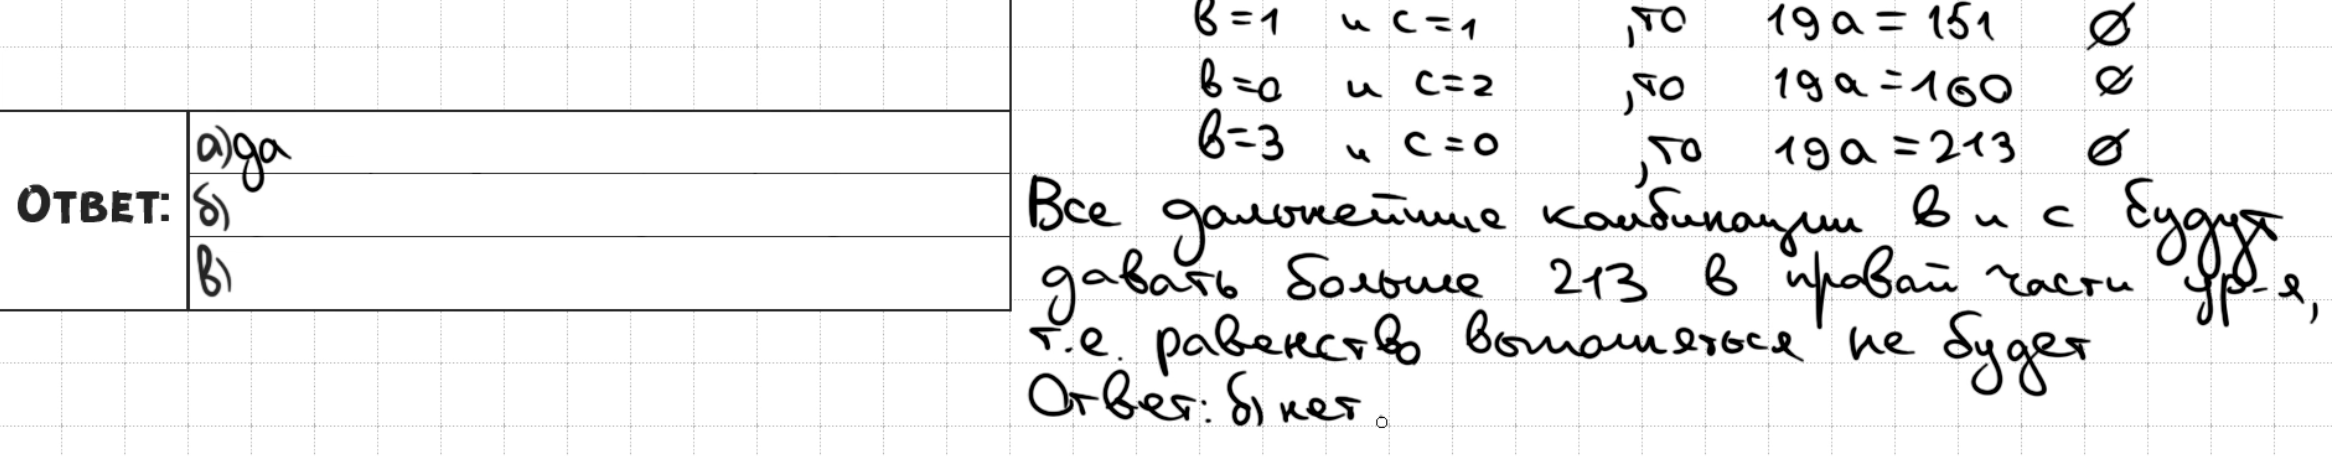 в=1 и с=1 ,то 19а=151 ∅
в=0 и с=2 ,то 19а=160 ∅
в=3 и с=0 ,то 19а=213 ∅
Все дальнейшие комбинации в и с будут
давать больше 213 в правой части ур-я,
т.е. равенство выполняться не будет
Ответ: б) нет
ОТВЕТ:
а) да
б)
в)